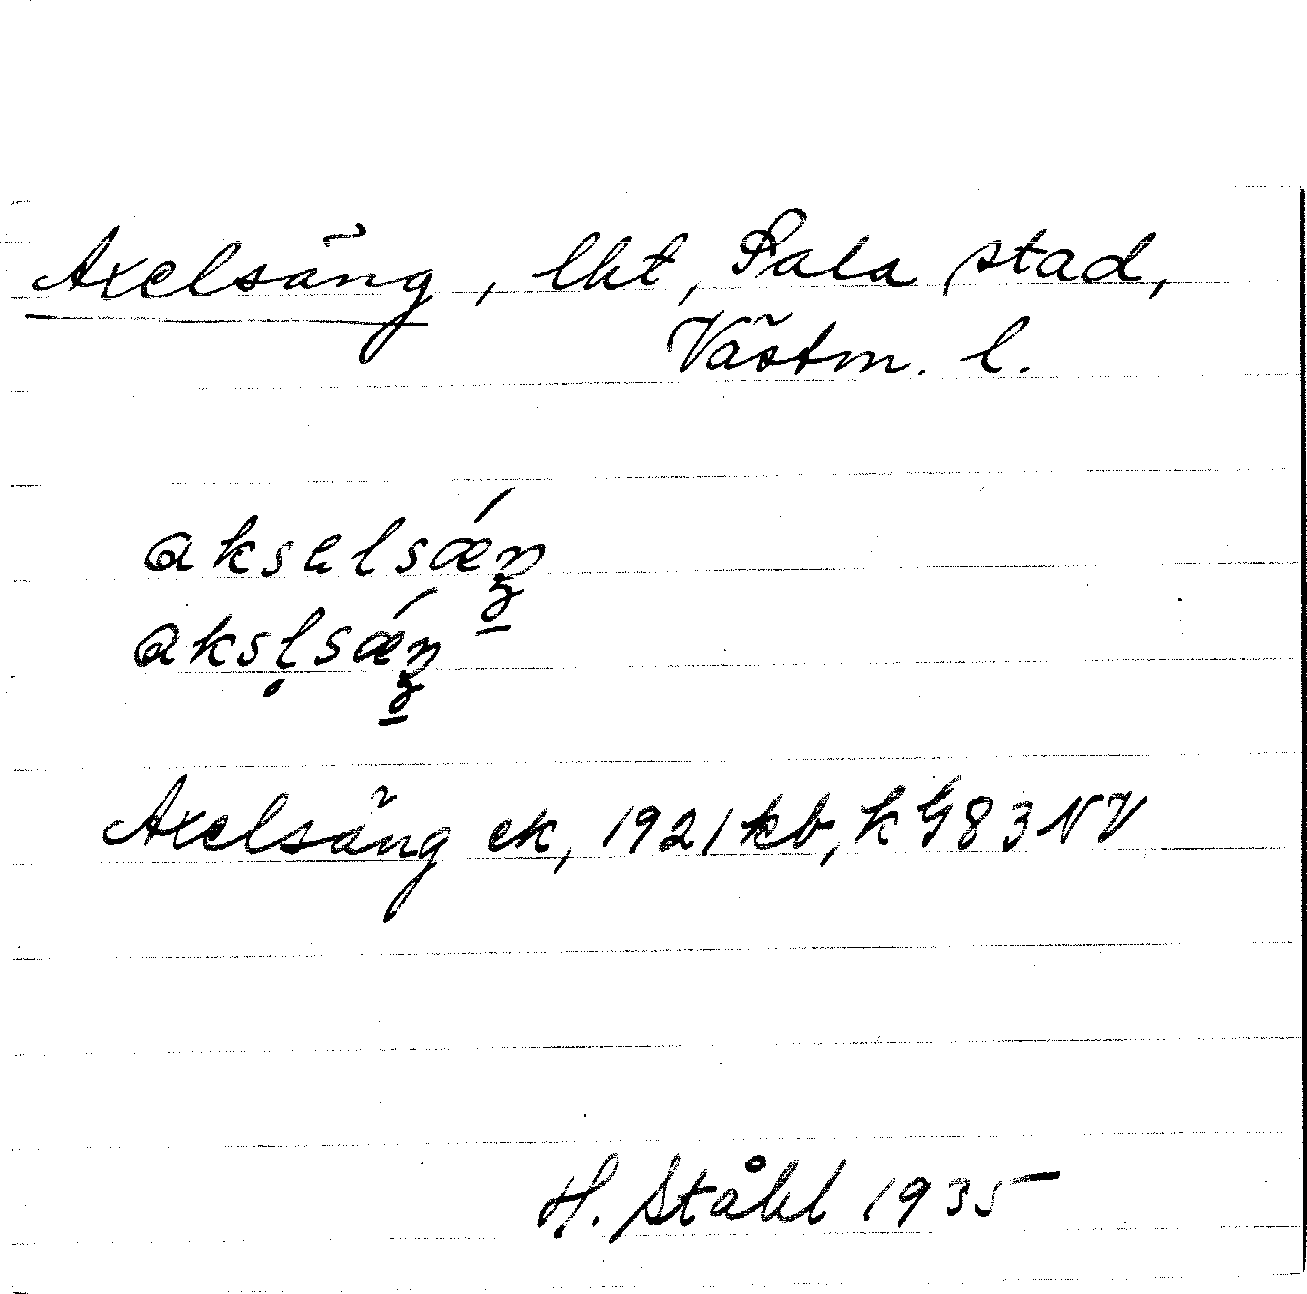 Axelsäng, lht, Sala stad,
Västm. l.
aksəlsǽŋ
aksl̥sǽŋ
Axelsäng ek, 1921 kb, k G83 NV
H. Ståhl 1935